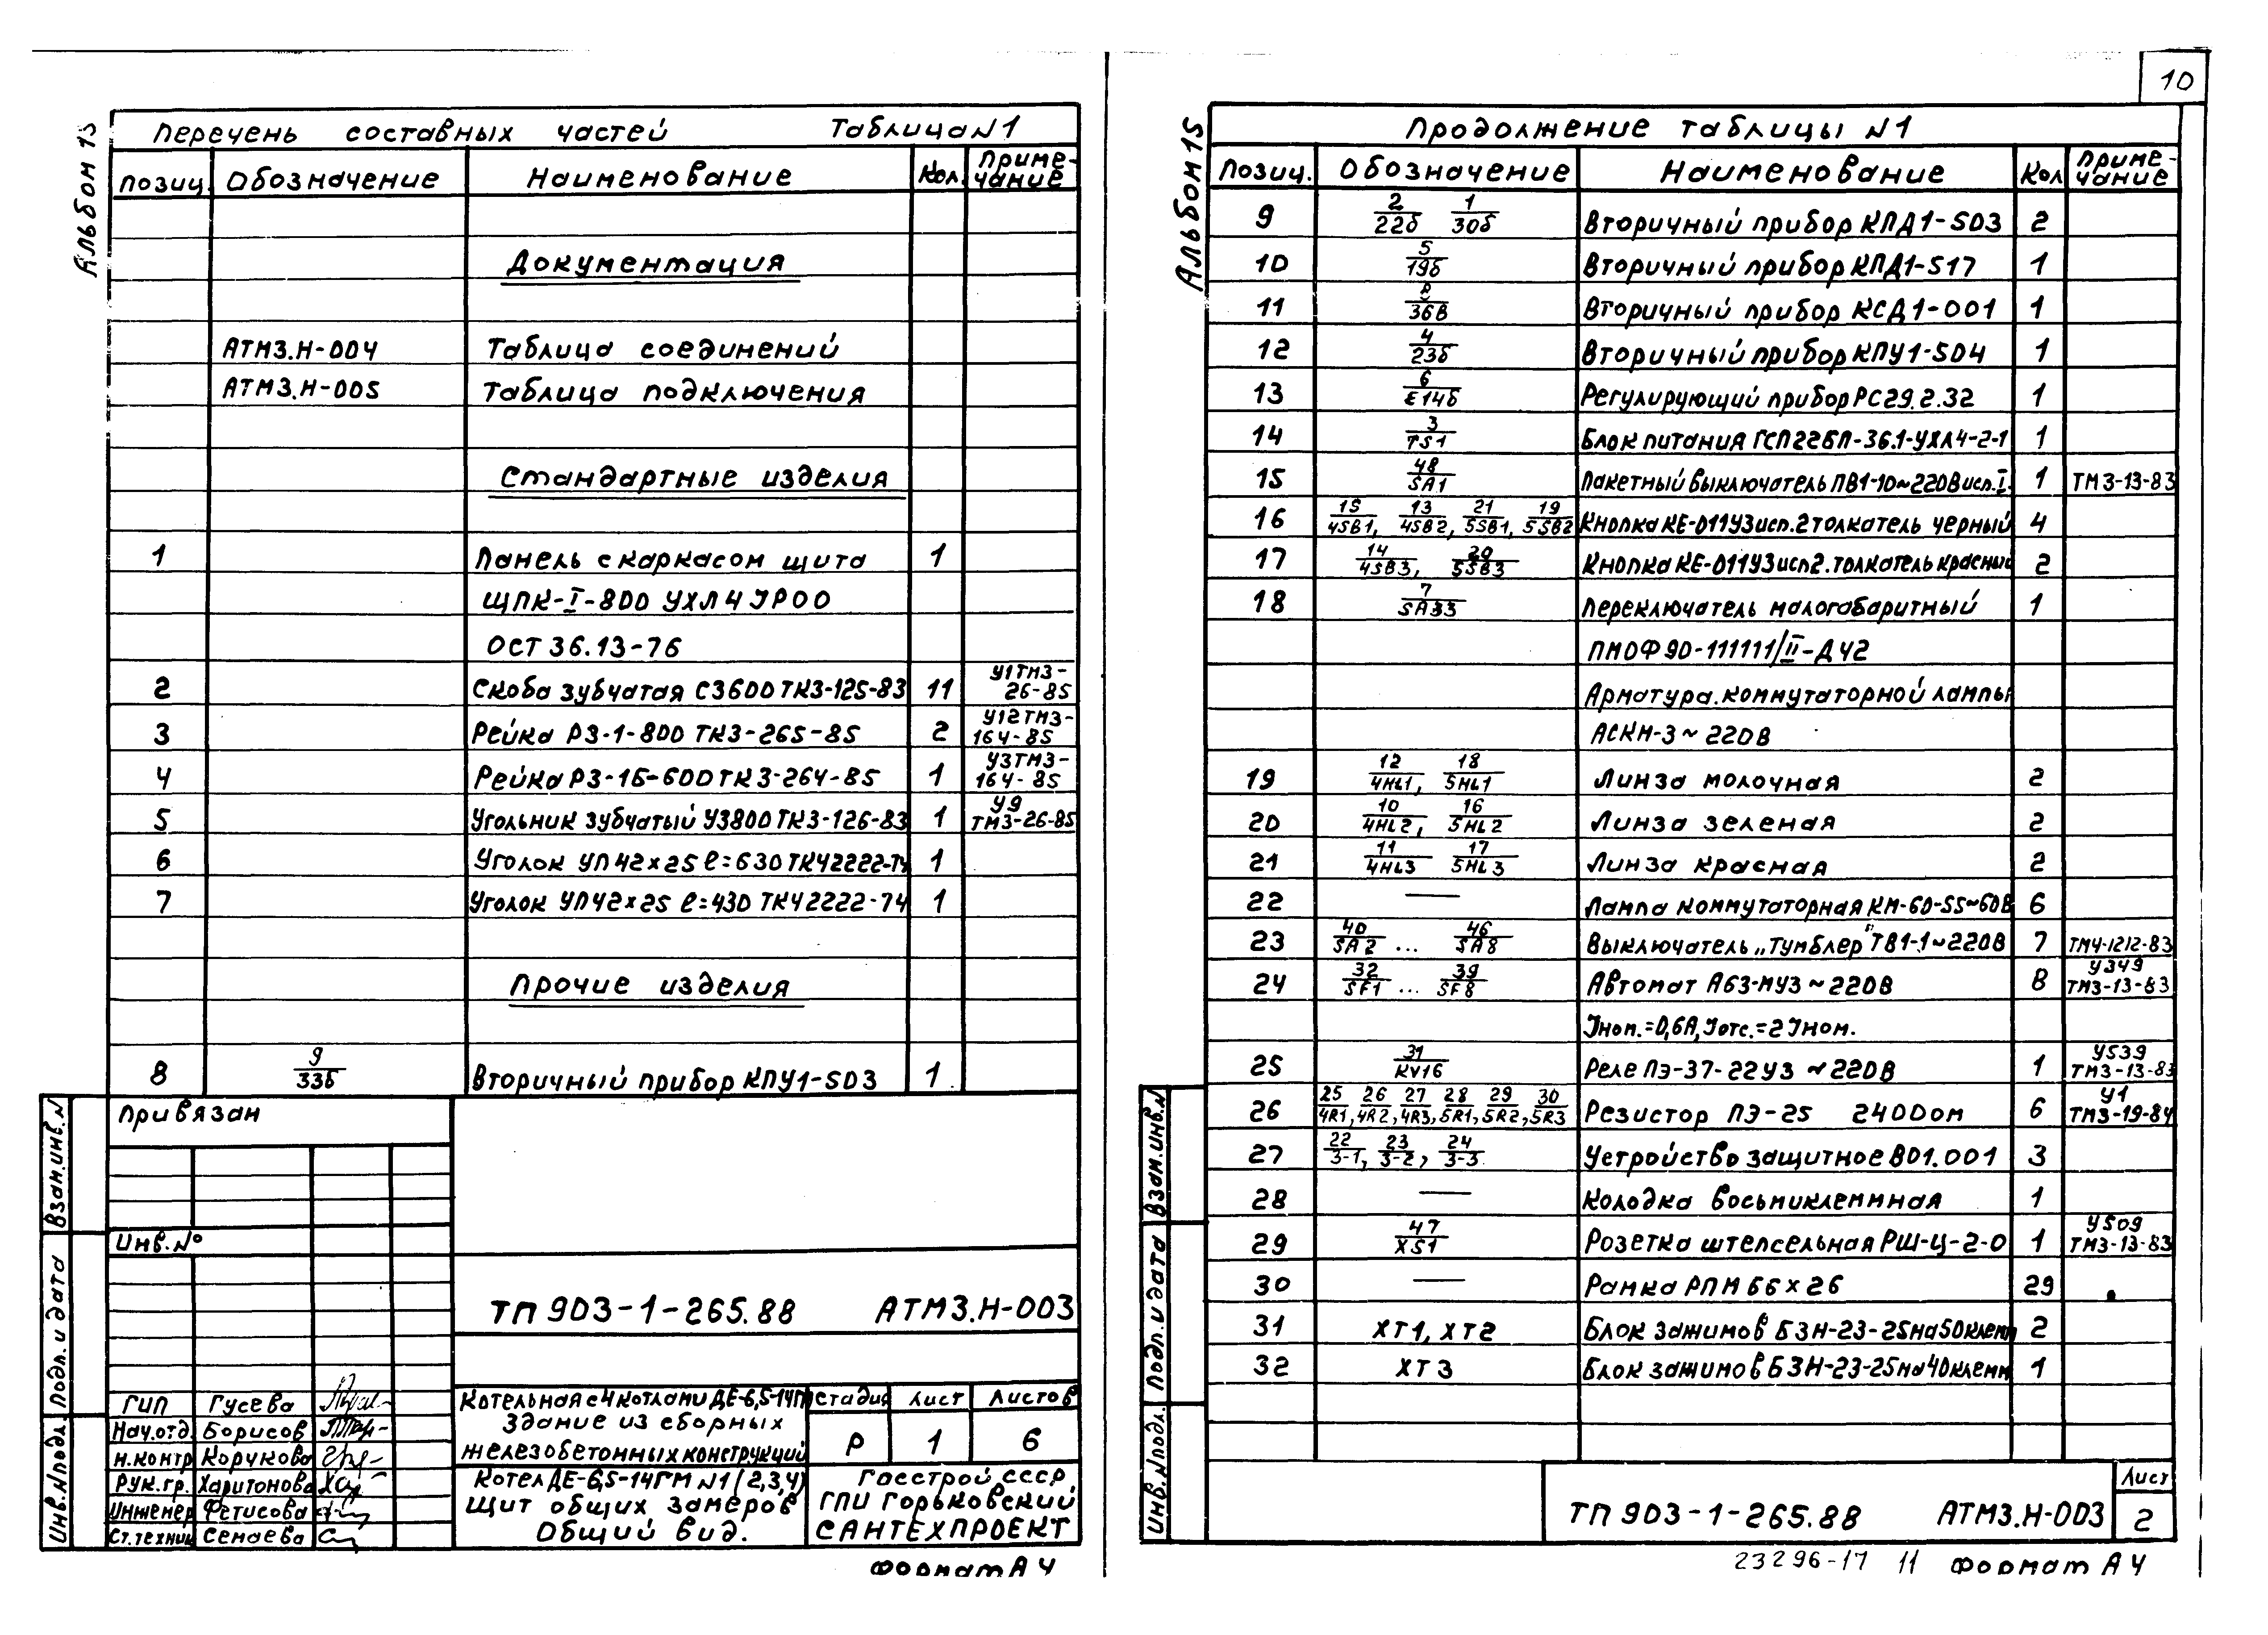 10
Альбом 15
Перечень составных частей Таблица N1
Позиц. Обозначение Наименование Кол. Приме-чание
Документация
АТМ3.Н-004 Таблица соединений
АТМ3.Н-005 Таблица подключения
Стандартные изделия
1 Панель с каркасом щита 1
ЩПК-I-800 УХЛ4 IР00
ОСТ 36.13-76
2 Скоба зубчатая С3600 ТК3-125-83 11 У1ТМ3-26-85
3 Рейка Р3-1-800 ТК3-265-85 2 У12ТМ3-164-85
4 Рейка Р3-1Б-600 ТК3-264-85 1 У3ТМ3-164-85
5 Угольник зубчатый У3800 ТК3-126-83 1 У9 ТМ3-26-85
6 Уголок УП42×25 ℓ=630 ТК42222-74 1
7 Уголок УП42×25 ℓ=430 ТК42222-74 1
Прочие изделия
8 9/33б Вторичный прибор КПУ1-503 1
Привязан
Инв.N°
Взам.инв.N
Подп. и дата
Инв.Nподл.
ТП 903-1-265.88 АТМ3.Н-003
ГИП Гусева
Нач.отд. Борисов
Н.контр Корчкова
Рук.гр. Харитонова
Инженер Фетисова
Ст.техник Семаева
Котельная с 4 котлами ДЕ-6,5-14ГМ
Здание из сборных
железобетонных конструкций
Стадия Лист Листов
Р 1 6
Котел ДЕ-6,5-14ГМ N1 (2,3,4)
Щит общих замеров
Общий вид.
Госстрой СССР
ГПИ Горьковский
САНТЕХПРОЕКТ
Формат А4
Альбом 15
Продолжение таблицы N1
Позиц. Обозначение Наименование Кол Приме-чание
9 2/22б 1/30б Вторичный прибор КПД1-503 2
10 5/19б Вторичный прибор КПД1-517 1
11 8/36в Вторичный прибор КСД1-001 1
12 4/23б Вторичный прибор КПУ1-504 1
13 6/Е14б Регулирующий прибор РС29.2.32 1
14 3/TS1 Блок питания ГСП22БП-36.1-УХЛ4-2-1 1
15 48/SA1 Пакетный выключатель ПВ1-10~220В исп.I. 1 ТМ3-13-83
16 15/4SB1, 13/4SB2, 21/5SB1, 19/5SB2 Кнопка КЕ-011У3 исп.2 толкатель черный 4
17 14/4SB3, 20/5SB3 Кнопка КЕ-011У3 исп2. толкатель красный 2
18 7/SA33 Переключатель малогабаритный 1
ПМОФ90-111111/II-Д42
Арматура коммутаторной лампы
АСКМ-3~220В
19 12/4HL1, 18/5HL1 Линза молочная 2
20 10/4HL2, 16/5HL2 Линза зеленая 2
21 11/4HL3 17/5HL3 Линза красная 2
22 — Лампа коммутаторная КМ-60-55~60В 6
23 40/SA2 ... 46/SA8 Выключатель „Тумблер" ТВ1-1~220В 7 ТМ4-1212-83
24 32/SF1 ... 39/SF8 Автомат А63-МУ3~220В 8 У349 ТМ3-13-83
Iном.=0,6А, Iотс.=2Iном.
25 31/KV16 Реле ПЭ-37-22У3 ~220В 1 У539 ТМ3-13-83
26 25/4R1, 26/4R2, 27/4R3, 28/5R1, 29/5R2, 30/5R3 Резистор ПЭ-25 2400ом 6 У1 ТМ3-19-84
27 22/3-1, 23/3-2, 24/3-3 Устройство защитное ВО1.001 3
28 — Колодка восьмиклеммная 1
29 47/XS1 Розетка штепсельная РШ-Ц-2-0 1 У509 ТМ3-13-83
30 — Рамка РПМ 66×26 29
31 ХТ1, ХТ2 Блок зажимов БЗН-23-25 на 50 клемм 2
32 ХТ3 Блок зажимов БЗН-23-25 на 40 клемм 1
Взам.инв.N
Подп. и дата
Инв.Nподл.
ТП 903-1-265.88 АТМ3.Н-003 Лист 2
23296-17 11 Формат А4